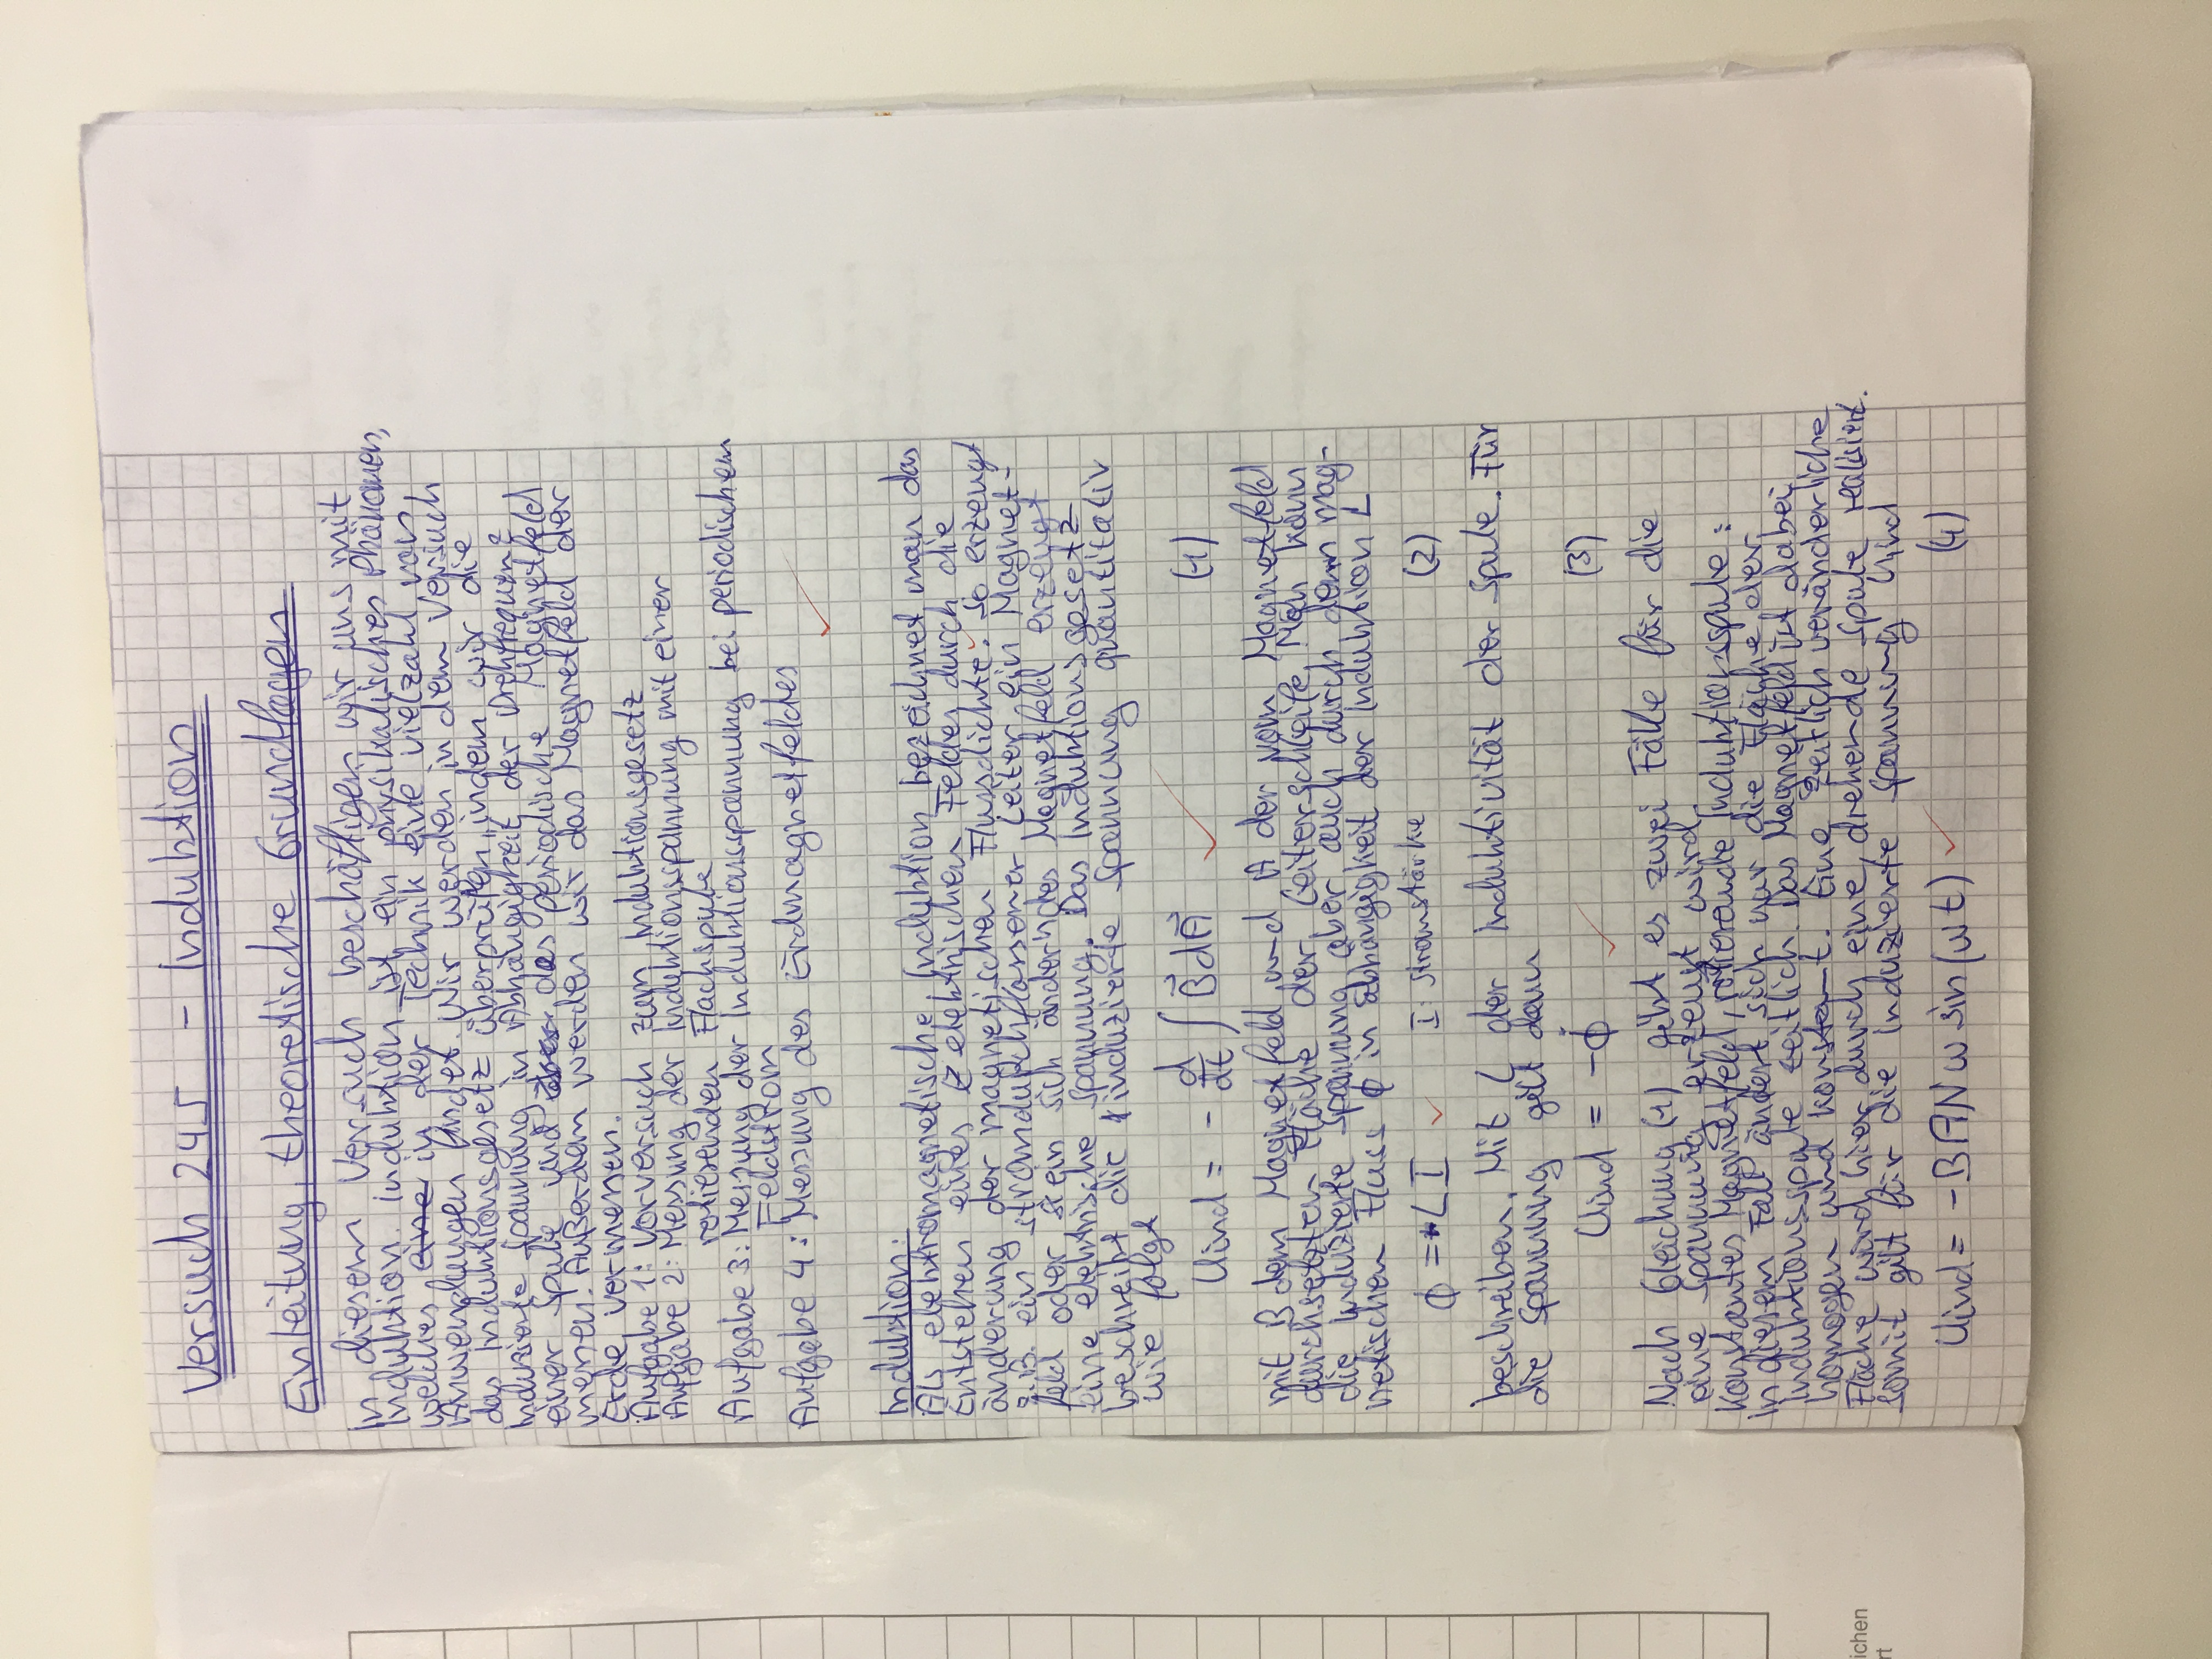 Versuch 245 - Induktion
Einleitung, theoretische Grundlagen
In diesem Versuch beschäftigen wir uns mit
Induktion. Induktion ist ein physikalisches Phänomen,
welches eine in der Technik eine vielzahl von
Anwendungen findet. Wir werden in dem Versuch
das Induktionsgesetz überprüfen, indem wir die
Induzierte Spannung in Abhängigkeit der Drehfrequenz
einer Spule und das periodische Magnetfeld
messen. Außerdem werden wir das Magnetfeld der
Erde vermessen.
Aufgabe 1: Vorversuch zum Induktionsgesetz
Aufgabe 2: Messung der Induktionsspannung mit einer
rotierenden Flachspule
Aufgabe 3: Messung der Induktionsspannung bei periodischem
Feldstrom
Aufgabe 4: Messung des Erdmagnetfeldes
Induktion:
Als elektromagnetische Induktion bezeichnet man das
Entstehen eines elektrischen Feldes durch die
änderung der magnetischen Flussdichte. So erzeugt
z.B. ein stromdurchflossener Leiter ein Magnet-
feld oder ein sich änderndes Magnetfeld erzeugt
eine elektrische Spannung. Das Induktionsgesetz
beschreibt die induzierte Spannung quantitativ
wie folgt
Uind = - d/dt ∫ B⃗ dA⃗ (1)
mit B dem Magnetfeld und A der vom Magnetfeld
durchsetzten Fläche der Leiterschleife. Man kann
die Induzierte Spannung aber auch durch denn mag-
netischen Fluss ϕ in abhängigkeit der Induktion L
ϕ = LI I: Stromstärke (2)
beschreiben. Mit L der Induktivität der Spule. Für
die Spannung gilt dann
Uind = -ϕ̇ (3)
Nach Gleichung (1) gibt es zwei Fälle für die
eine Spannung erzeugt wird.
Konstantes Magnetfeld, rotierende Induktionsspule:
In diesem Fall ändert sich nur die Fläche der
Induktionsspule zeitlich. Das Magnetfeld ist dabei
homogen und konstant. Eine zeitlich veränderliche
Fläche wird hier durch eine drehende Spule realisiert.
Somit gilt für die Induzierte Spannung Uind
Uind = -BANω sin(ωt) (4)
ichen
rt